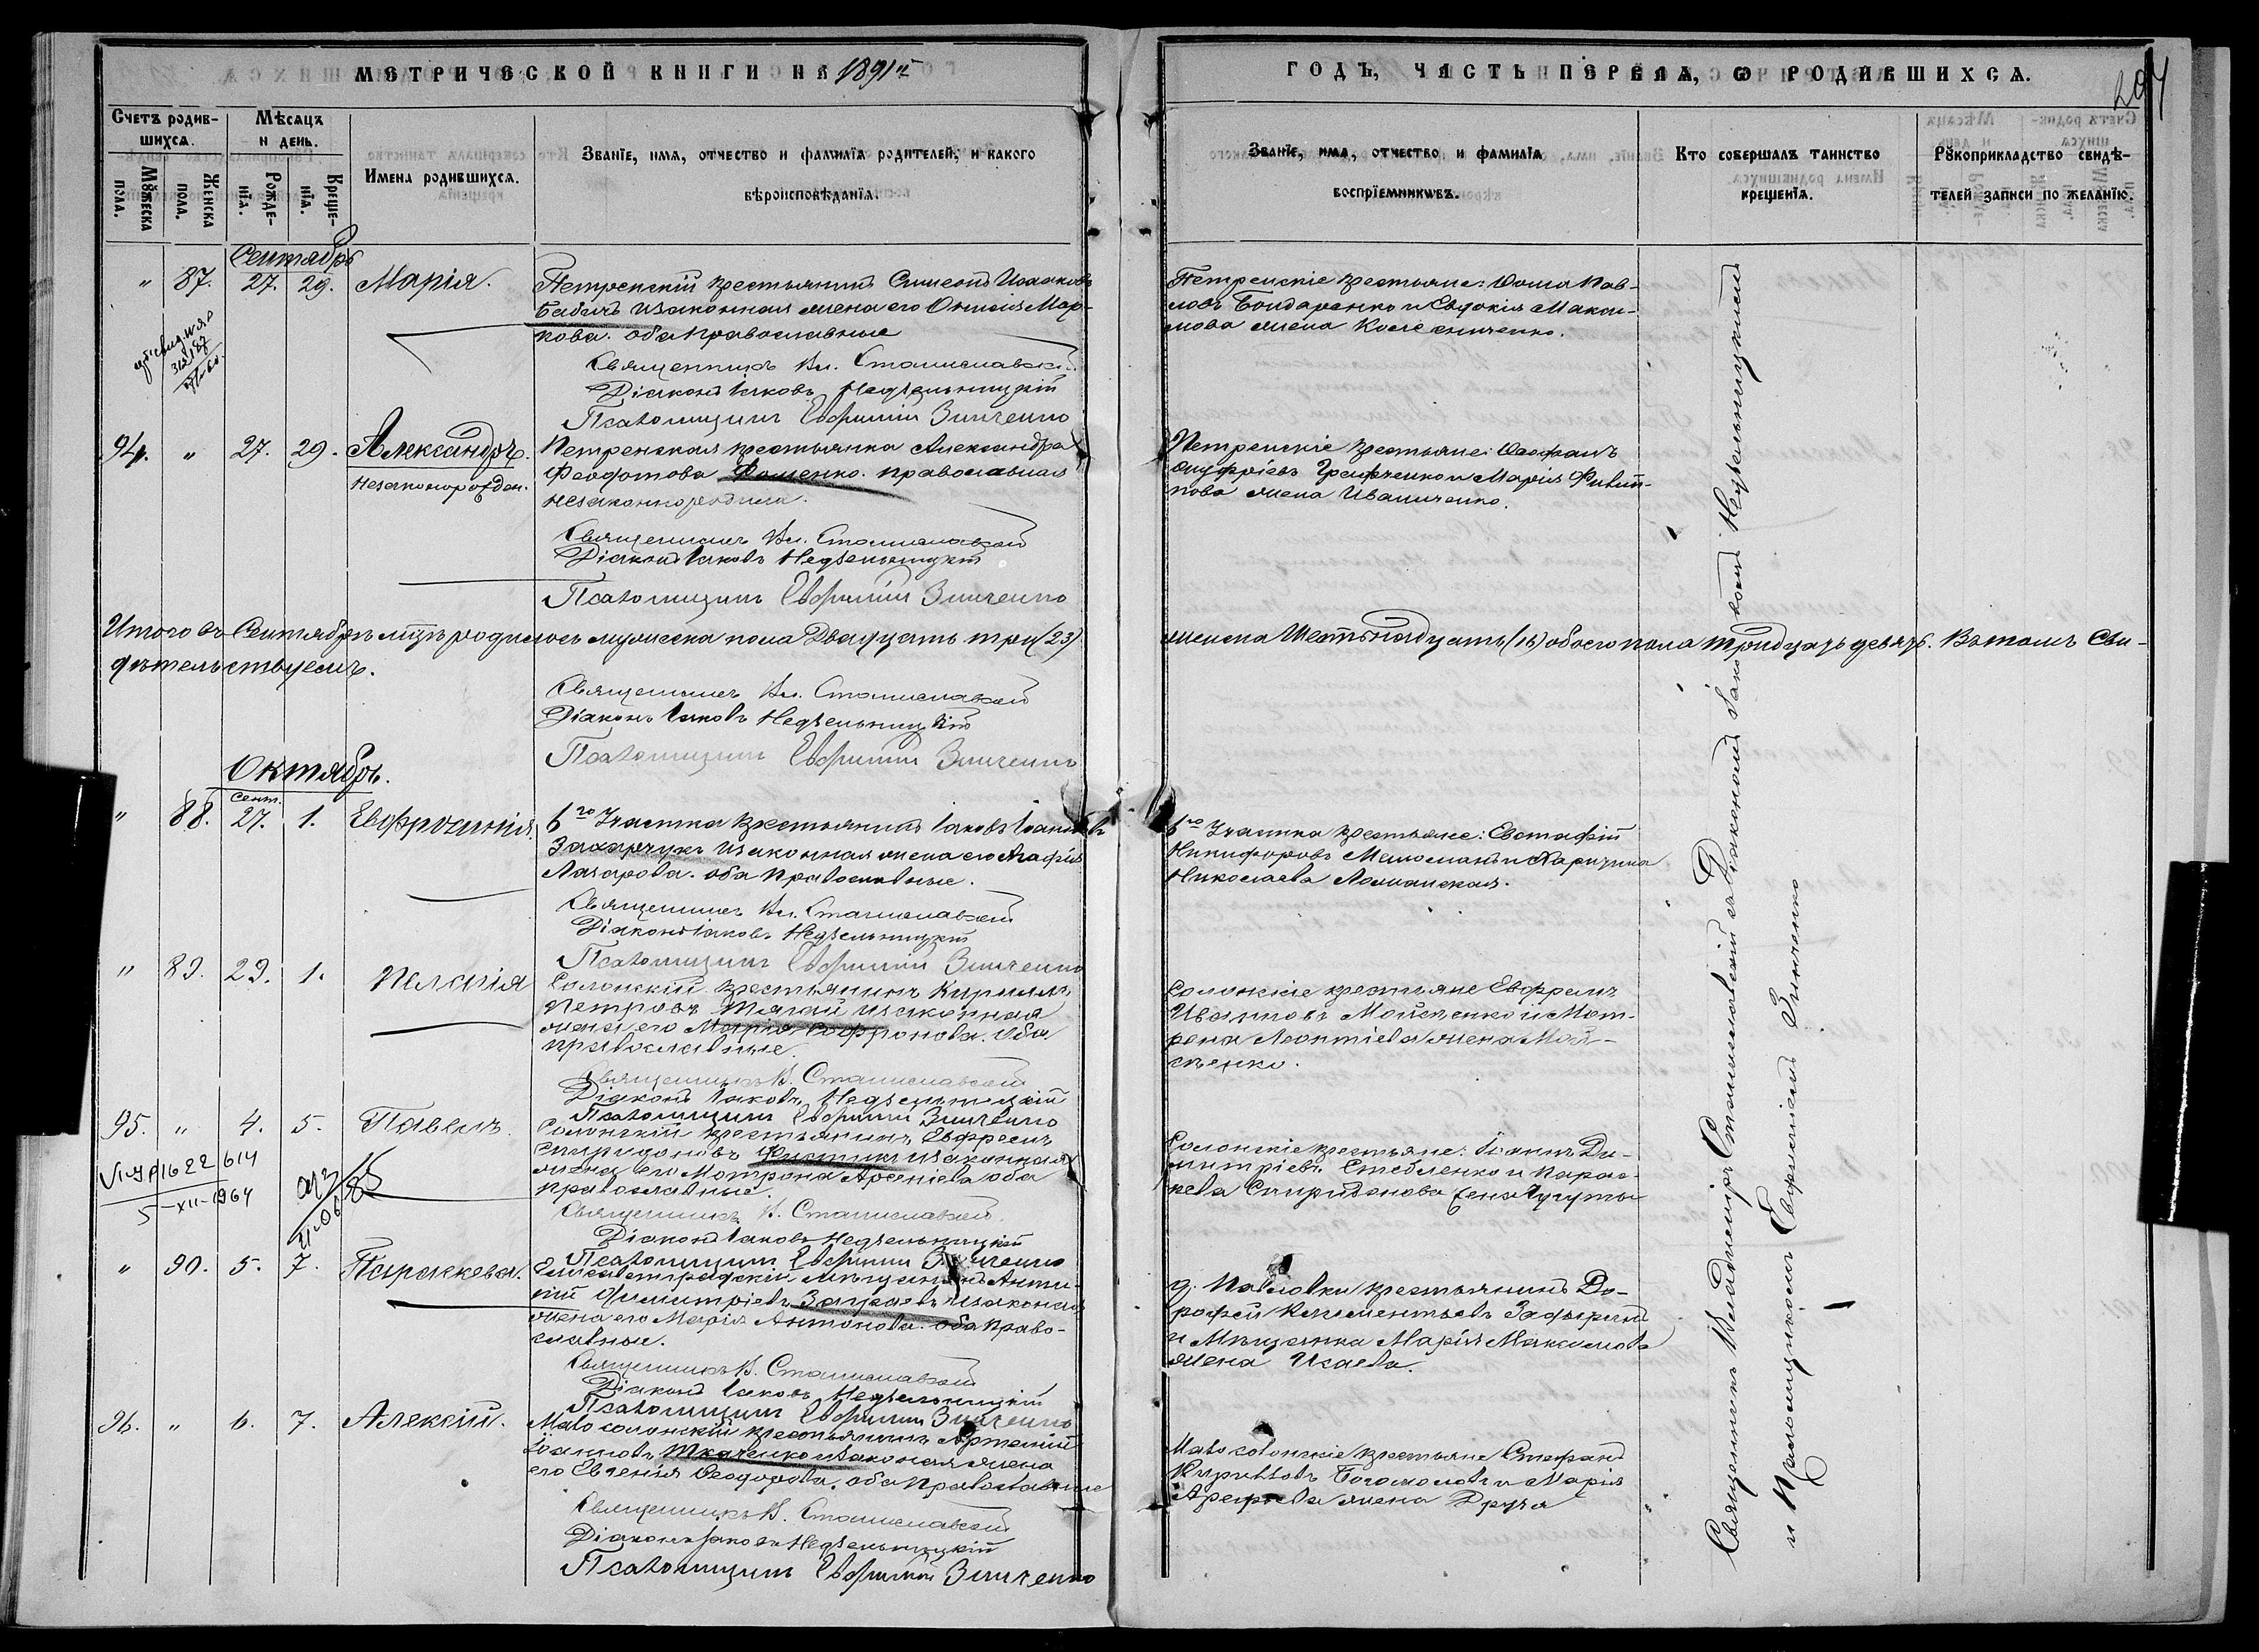 МЕТРИЧЕСКОЙ КНИГИ НА 1891й
ГОДЪ, ЧАСТЬ ПЕРВАЯ, Ѡ РОДИВШИХСѦ.
204
Счетъ родив-
шихсѧ.
Мѣсѧцъ
и день.
Мꙋжеска
пола.
Женска
пола.
Рожде-
нїѧ.
Креще-
нїѧ.
Имена родившихсѧ.
Званїе, имѧ, отчество и фамилїѧ родителей, и какого
вѣроисповѣданїѧ.
Званїе, имѧ, отчество и фамилїѧ
воспрїемникѡвъ.
Кто совершалъ таинство
крещенїѧ.
Рꙋкоприкладство свидѣ-
телей записи по желанїю.
Сентябрь
" 87. 27. 29. Марія.
Петренскій крестьянинъ Симеонъ Исааковъ
Бабичъ и законная жена его Онисія Мар-
кова. оба православные
Священникъ Вл. Станиславскій
Діаконъ Іаковъ Недзельницкій
Псаломщикъ Евфимій Зинченко
Петренскіе крестьяне: Ѳома Пав-
ловъ Бондаренко и Евдокія Макси-
мова жена Колесниченко.
94. " 27. 29. Александръ.
незаконорожден.
Петренская крестьянка Александра
Феодотова Фоменко. православная
незаконнородила.
Священникъ Вл. Станиславскій
Діаконъ Іаковъ Недзельницкій
Псаломщикъ Евфимій Зинченко
Петренскіе крестьяне: Ѳеофанъ
Онуфріевъ и Марія Филип-
пова жена Иваниченко.
Итого въ Сентябрѣ мцѣ родилось мужеска пола Двадцать три (23)
женска Шестьнадцать (16) обоего пола тридцать девять. Въ томъ Сви-
дѣтельствуемъ.
Священникъ Вл. Станиславскій
Діаконъ Іаковъ Недзельницкій
Псаломщикъ Евфимій Зинченко
Октябрь.
Сент.
" 88. 27. 1. Евфросинія.
6го Участка крестьянинъ Іаковъ Іоанновъ
Захарчукъ и законная жена его Агафія
Лазарева. оба православные.
Священникъ Вл. Станиславскій
Діаконъ Іаковъ Недзельницкій
Псаломщикъ Евфимій Зинченко
6го Участка крестьяне: Евстафій
Никифоровъ и Харитина
Николаева
" 89. 29. 1. Пелагія
Солонскій крестьянинъ Кириллъ
Петровъ Тягай и законная
жена его Марія Софронова. Оба
православные.
Священникъ В. Станиславскій
Діаконъ Іаковъ Недзельницкій
Псаломщикъ Евфимій Зинченко
Солонскіе крестьяне Евфремъ
Ивановъ Мойсѣенко и Мот-
рена Леонтіева жена Мой-
сѣенко.
95. " 4. 5. Павелъ.
Солонскій крестьянинъ Евфремъ
Спиридоновъ и законная
жена его Мотрона Арсеніева оба
православные.
Священникъ В. Станиславскій
Діаконъ Іаковъ Недзельницкій
Псаломщикъ Евфимій Зинченко
Солонскіе крестьяне: Іоаннъ Ди-
митріевъ Стебленко и Парас-
кева Спиридонова жена
5-XII-1964
" 90. 5. 7. Параскева.
Елисаветградскій мѣщанинъ
Димитріевъ и законная
жена его Марія Антонова. оба право-
славные.
Священникъ В. Станиславскій
Діаконъ Іаковъ Недзельницкій
Псаломщикъ Евфимій Зинченко
д. Павловки крестьянинъ До-
рофей Климентьевъ
и Мѣщанка Марія Максимова
жена Исаева.
96. " 6. 7. Алексій.
Малосолонскій крестьянинъ Артемій
Іоанновъ Ткаченко и законная жена
его Евгенія Ѳеодорова. оба православные
Священникъ В. Станиславскій
Діаконъ Іаковъ Недзельницкій
Псаломщикъ Евфимій Зинченко
Малосолонскіе крестьяне Стефанъ
Кирилловъ Богомоловъ и Марія
Арефьева жена
Священникъ Владимиръ Станиславскій съ Діакономъ Іаковомъ Недзельницкимъ
и Псаломщикомъ Евфиміемъ Зинченко